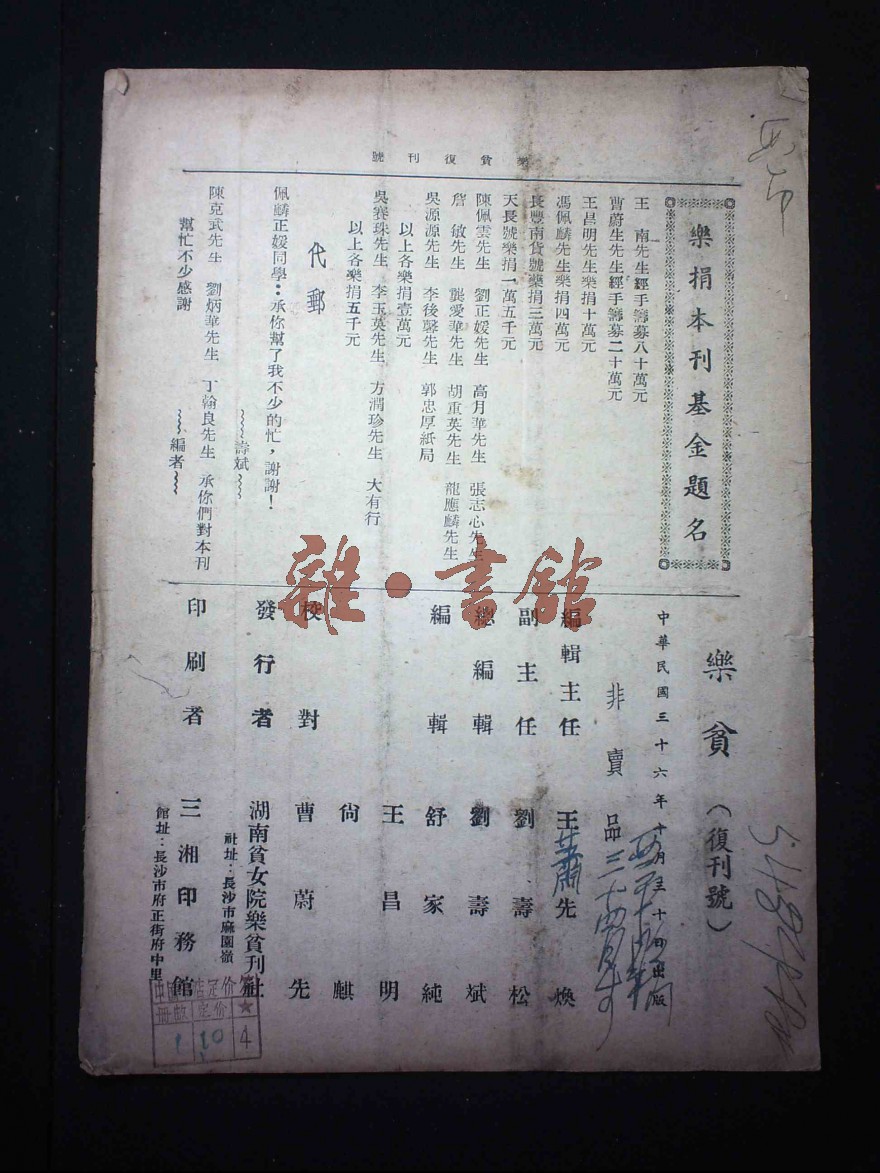 樂貧復刊號
樂捐本刊基金題名
王　南先生經手籌募八十萬元
曹蔚生先生經手籌募二十萬元
王昌明先生樂捐十萬元
馮佩麟先生樂捐四萬元
長豐南貨號樂捐三萬元
天長號樂捐一萬五千元
陳佩雲先生　劉正媛先生　高月華先生　張志心先生
詹　敏先生　龔愛華先生　胡重英先生　龍應麟先生
吳源源先生　李後馨先生　郭忠厚紙局
以上各樂捐壹萬元
吳賽珠先生　李玉英先生　方潤珍先生　大有行
以上各樂捐五千元
代郵
佩麟正媛同學：承你幫了我不少的忙，謝謝！
壽斌
陳克武先生　劉炳華先生　丁翰良先生　承你們對本刊
幫忙不少感謝
編者
樂貧（復刊號）
中華民國三十六年十月三十日出版
非賣品
編輯主任　王先煥
副主任　劉壽松
總編輯　劉壽斌
編輯　舒家純
王昌明
尙麒
校對　曹蔚先
發行者　湖南貧女院樂貧刊社
社址：長沙市麻園嶺
印刷者　三湘印務館
館址：長沙市府正街府中里
雜·書館
冊數　定价　★
1　10　4